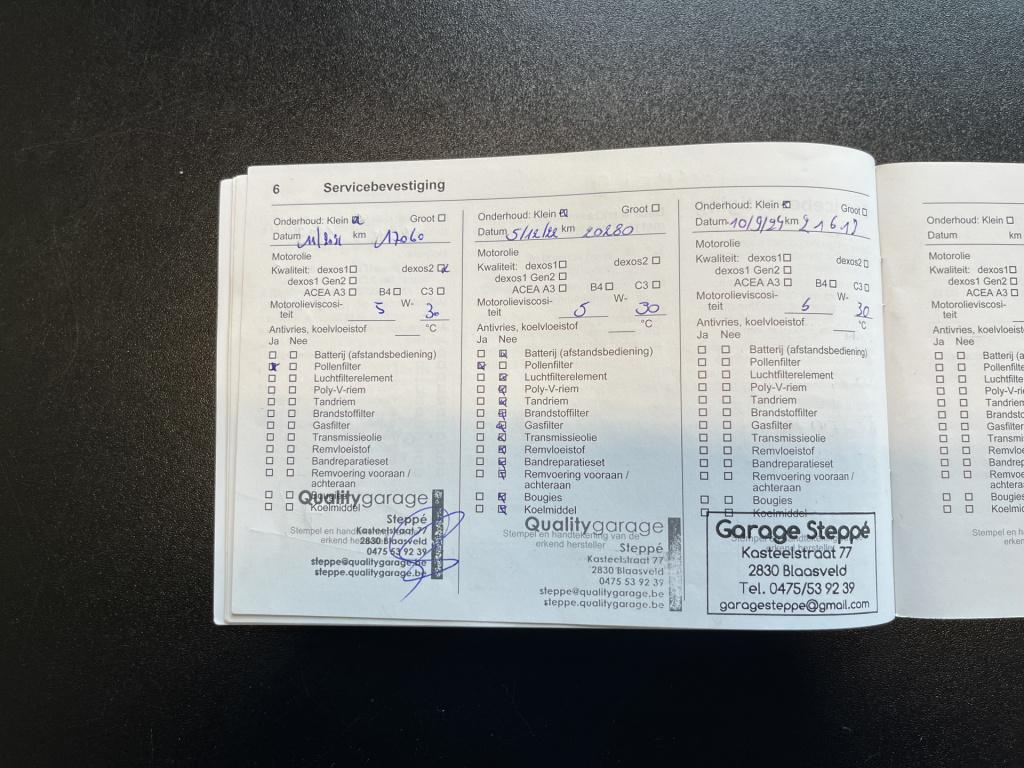 6 Servicebevestiging
Onderhoud: Klein Groot
Datum 11/2021 km 17060
Motorolie
Kwaliteit: dexos1 dexos2
dexos1 Gen2
ACEA A3 B4 C3
Motorolieviscosi-
teit 5 W- 30
Antivries, koelvloeistof °C
Ja Nee
Batterij (afstandsbediening)
Pollenfilter
Luchtfilterelement
Poly-V-riem
Tandriem
Brandstoffilter
Gasfilter
Transmissieolie
Remvloeistof
Bandreparatieset
Remvoering vooraan /
achteraan
Bougies
Koelmiddel
Qualitygarage
Steppé
Stempel en handtekening van de
erkend hersteller
Kasteelstraat 77
2830 Blaasveld
0475 53 92 39
steppe@qualitygarage.be
steppe.qualitygarage.be
Onderhoud: Klein Groot
Datum 5/12/22 km 20280
Motorolie
Kwaliteit: dexos1 dexos2
dexos1 Gen2
ACEA A3 B4 C3
Motorolieviscosi-
teit 5 W- 30
Antivries, koelvloeistof °C
Ja Nee
Batterij (afstandsbediening)
Pollenfilter
Luchtfilterelement
Poly-V-riem
Tandriem
Brandstoffilter
Gasfilter
Transmissieolie
Remvloeistof
Bandreparatieset
Remvoering vooraan /
achteraan
Bougies
Koelmiddel
Qualitygarage
Stempel en handtekening van de
erkend hersteller
Steppé
Kasteelstraat 77
2830 Blaasveld
0475 53 92 39
steppe@qualitygarage.be
steppe.qualitygarage.be
Onderhoud: Klein Groot
Datum 10/9/24 km 21619
Motorolie
Kwaliteit: dexos1 dexos2
dexos1 Gen2
ACEA A3 B4 C3
Motorolieviscosi-
teit 5 W- 30
Antivries, koelvloeistof °C
Ja Nee
Batterij (afstandsbediening)
Pollenfilter
Luchtfilterelement
Poly-V-riem
Tandriem
Brandstoffilter
Gasfilter
Transmissieolie
Remvloeistof
Bandreparatieset
Remvoering vooraan /
achteraan
Bougies
Koelmiddel
Garage Steppé
Kasteelstraat 77
2830 Blaasveld
Tel. 0475/53 92 39
garagesteppe@gmail.com
Onderhoud: Klein
Datum km
Motorolie
Kwaliteit: dexos1
dexos1 Gen2
ACEA A3
Motorolieviscosi-
teit
Antivries, koelvloeistof
Ja Nee
Batterij (a
Pollenfilte
Luchtfilte
Poly-V-ri
Tandriem
Brandsto
Gasfilter
Transmis
Remvloe
Bandrep
Remvoe
achteraa
Bougies
Koelmid
Stempel en han
erken